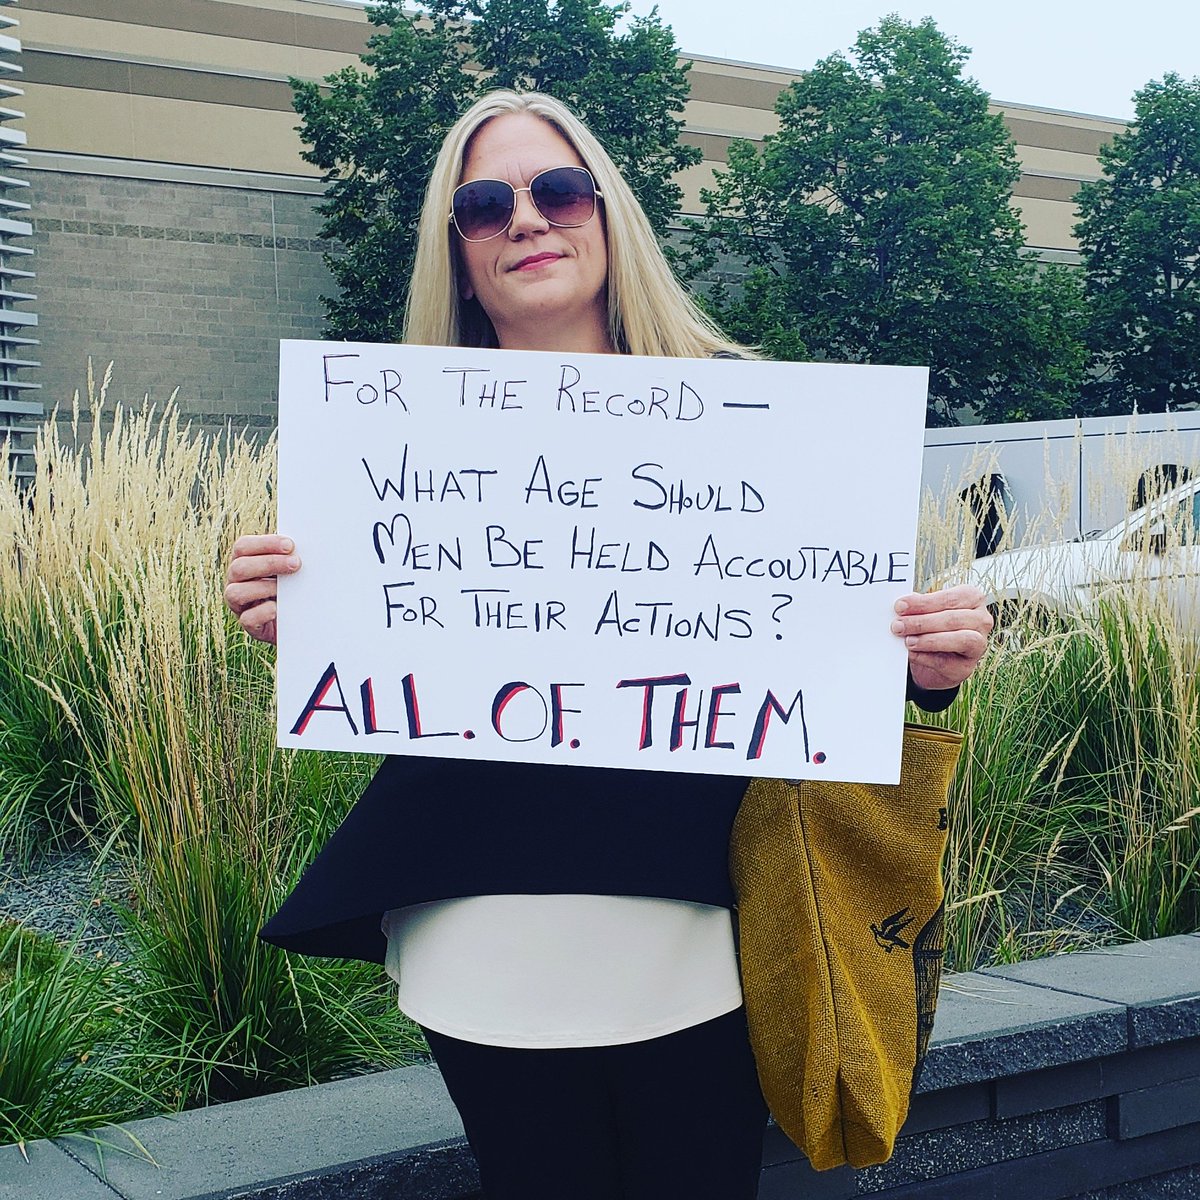 FOR THE RECORD —
WHAT AGE SHOULD
MEN BE HELD ACCOUTABLE
FOR THEIR ACTIONS?
ALL. OF. THEM.